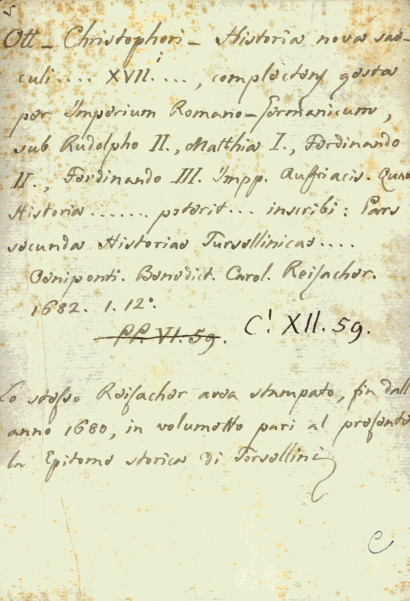 Ott - Christophori - Historia nova sae-
culi .... XVII. ...., complectens gesta
per Imperium Romano-Germanicum,
sub Rudolpho II., Matthia I., Ferdinando
II., Ferdinando III. Impp. Austriacis. Quae
Historia ....... poterit ... inscribi: Pars
secunda Historiae Tursellinicae ....
Oeniponti. Benedict. Carol. Reisacher.
1682. 1. 12°.
PP. VI. 59. C! XII. 59.
Lo stesso Reisacher avea stampato, fin dall
anno 1680, in volumetto pari al presente
la Epitome storica di Torsellini